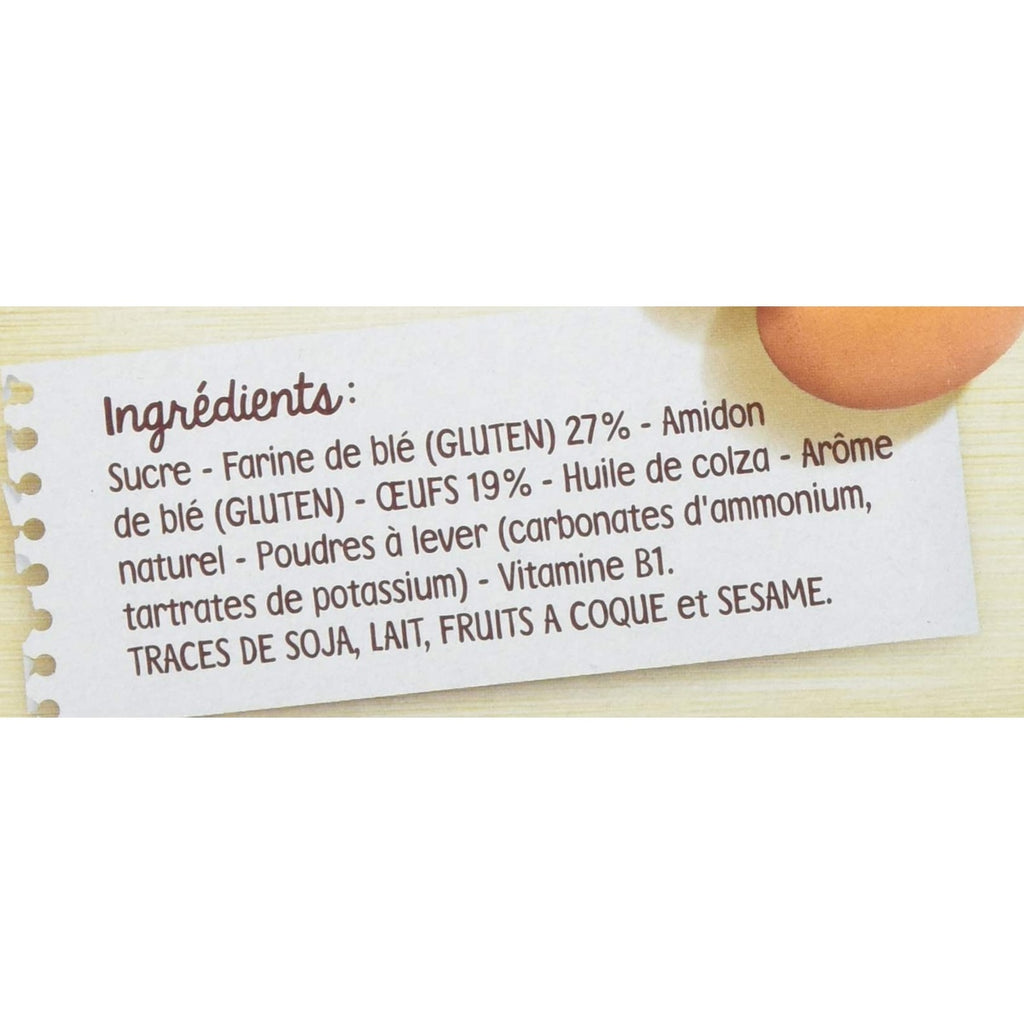 Ingrédients :
Sucre - Farine de blé (GLUTEN) 27% - Amidon
de blé (GLUTEN) - ŒUFS 19% - Huile de colza - Arôme
naturel - Poudres à lever (carbonates d'ammonium,
tartrates de potassium) - Vitamine B1.
TRACES DE SOJA, LAIT, FRUITS A COQUE et SESAME.